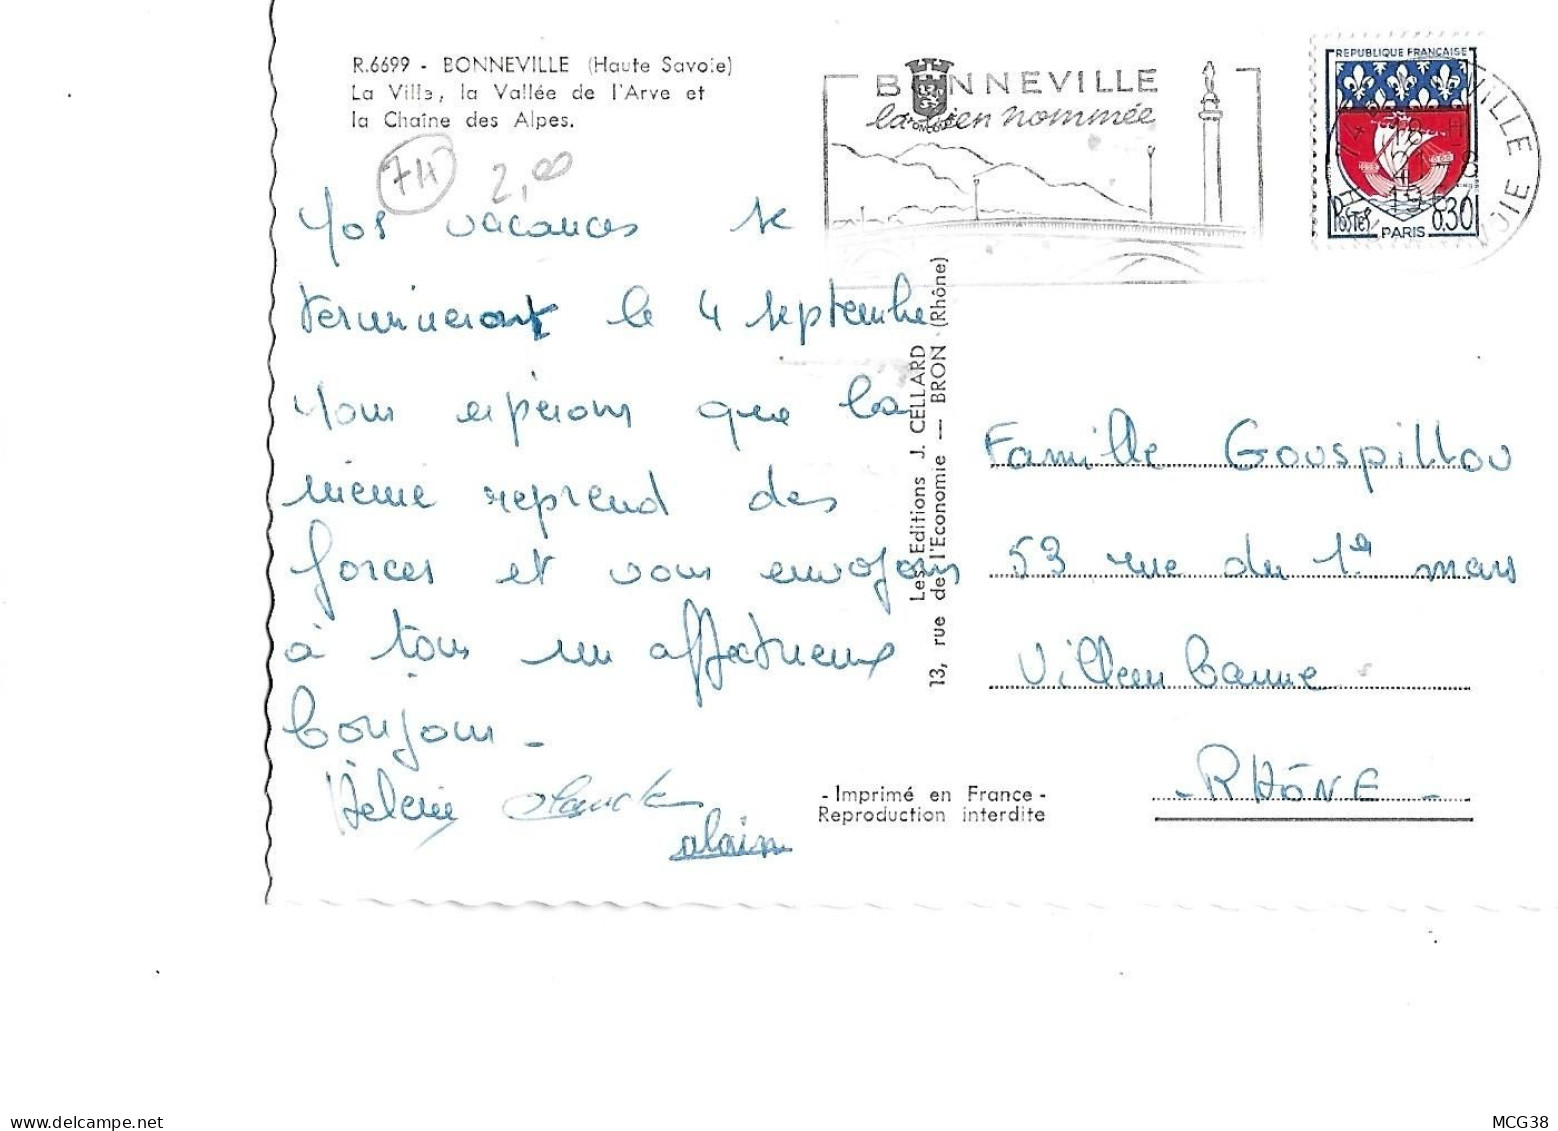 R.6699 - BONNEVILLE (Haute Savoie)
La Ville, la Vallée de l'Arve et
la Chaîne des Alpes.
74
2,00
BONNEVILLE
la bien nommée
REPUBLIQUE FRANÇAISE
Postes
PARIS
0,30
Nos vacances se
termineront le 4 septembre
Nous espérons que la
mémé reprend des
forces et vous envoyons
à tous un affectueux
bonjour -
Hélène
alain
Les Editions J. CELLARD
13, rue de l'Economie — BRON (Rhône)
Famille Gouspillou
53 rue du 1er mars
Villeurbanne
- RHÔNE -
- Imprimé en France -
Reproduction interdite
delcampe.net
MCG38